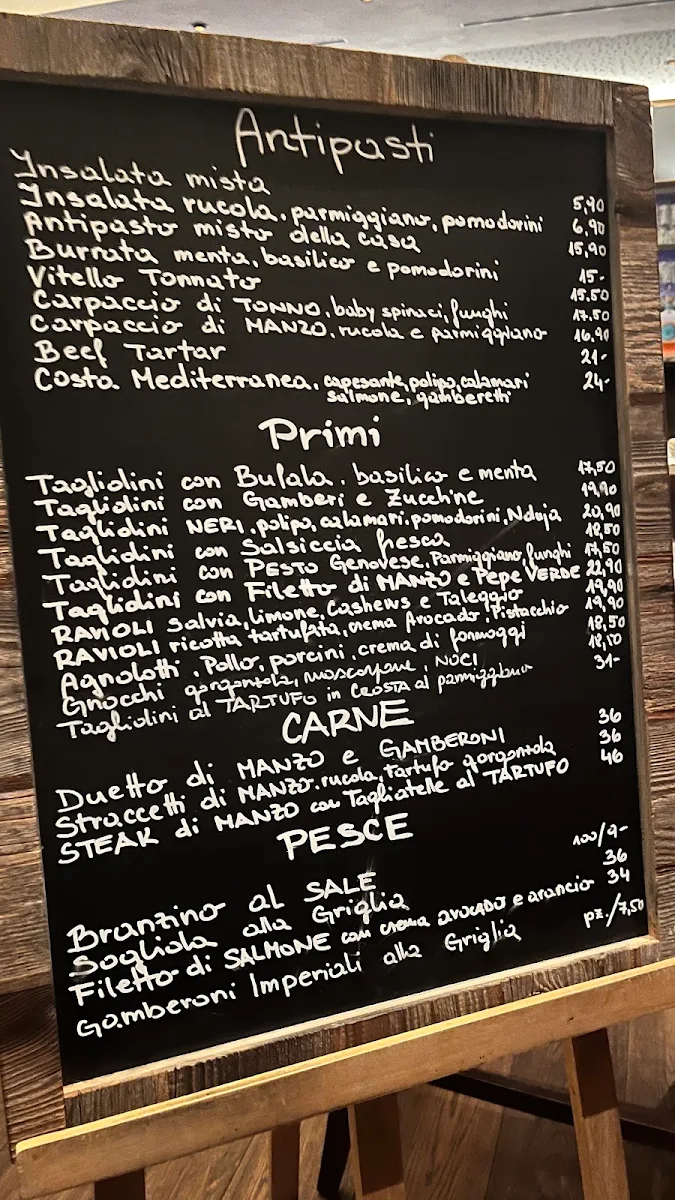 Antipasti
Insalata mista 5,90
Insalata rucola, parmiggiano, pomodorini 6,90
Antipasto misto della casa 15,90
Burrata menta, basilico e pomodorini 15-
Vitello Tonnato 15.50
Carpaccio di TONNO, baby spinaci, funghi 17.50
Carpaccio di MANZO, rucola e parmiggiano 16,90
Beef Tartar 21-
Costa Mediterranea, capesante, polipo, calamari 24-
salmone, gamberetti
Primi
Tagliolini con Bufala, basilico e menta 17,50
Tagliolini con Gamberi e Zucchine 19,90
Tagliolini NERI, polipo, calamari, pomodorini, Nduja 20,90
Tagliolini con Salsiccia fresca 18,50
Tagliolini con PESTO Genovese, Parmiggiano, funghi 17,50
Tagliolini con Filetto di MANZO e Pepe VERDE 22,90
RAVIOLI Salvia, limone, Cashews e Taleggio 19,90
RAVIOLI ricotta tartufata, crema Avocado, Pistacchio 19,90
Agnolotti, Pollo, porcini, crema di formaggi 18,50
Gnocchi gorgontola, mascorpone, NOCI 18,50
Tagliolini al TARTUFO in CROSTA al parmiggiano 31-
CARNE
Duetto di MANZO e GAMBERONI 36
Straccetti di MANZO, rucola, tartufo gorgontola 36
STEAK di MANZO con Tagliatelle al TARTUFO 46
PESCE
Branzino al SALE 100/9-
Sogliola alla Griglia 36
Filetto di SALMONE con crema avocado e arancio 34
Gamberoni Imperiali alla Griglia pz./7,50